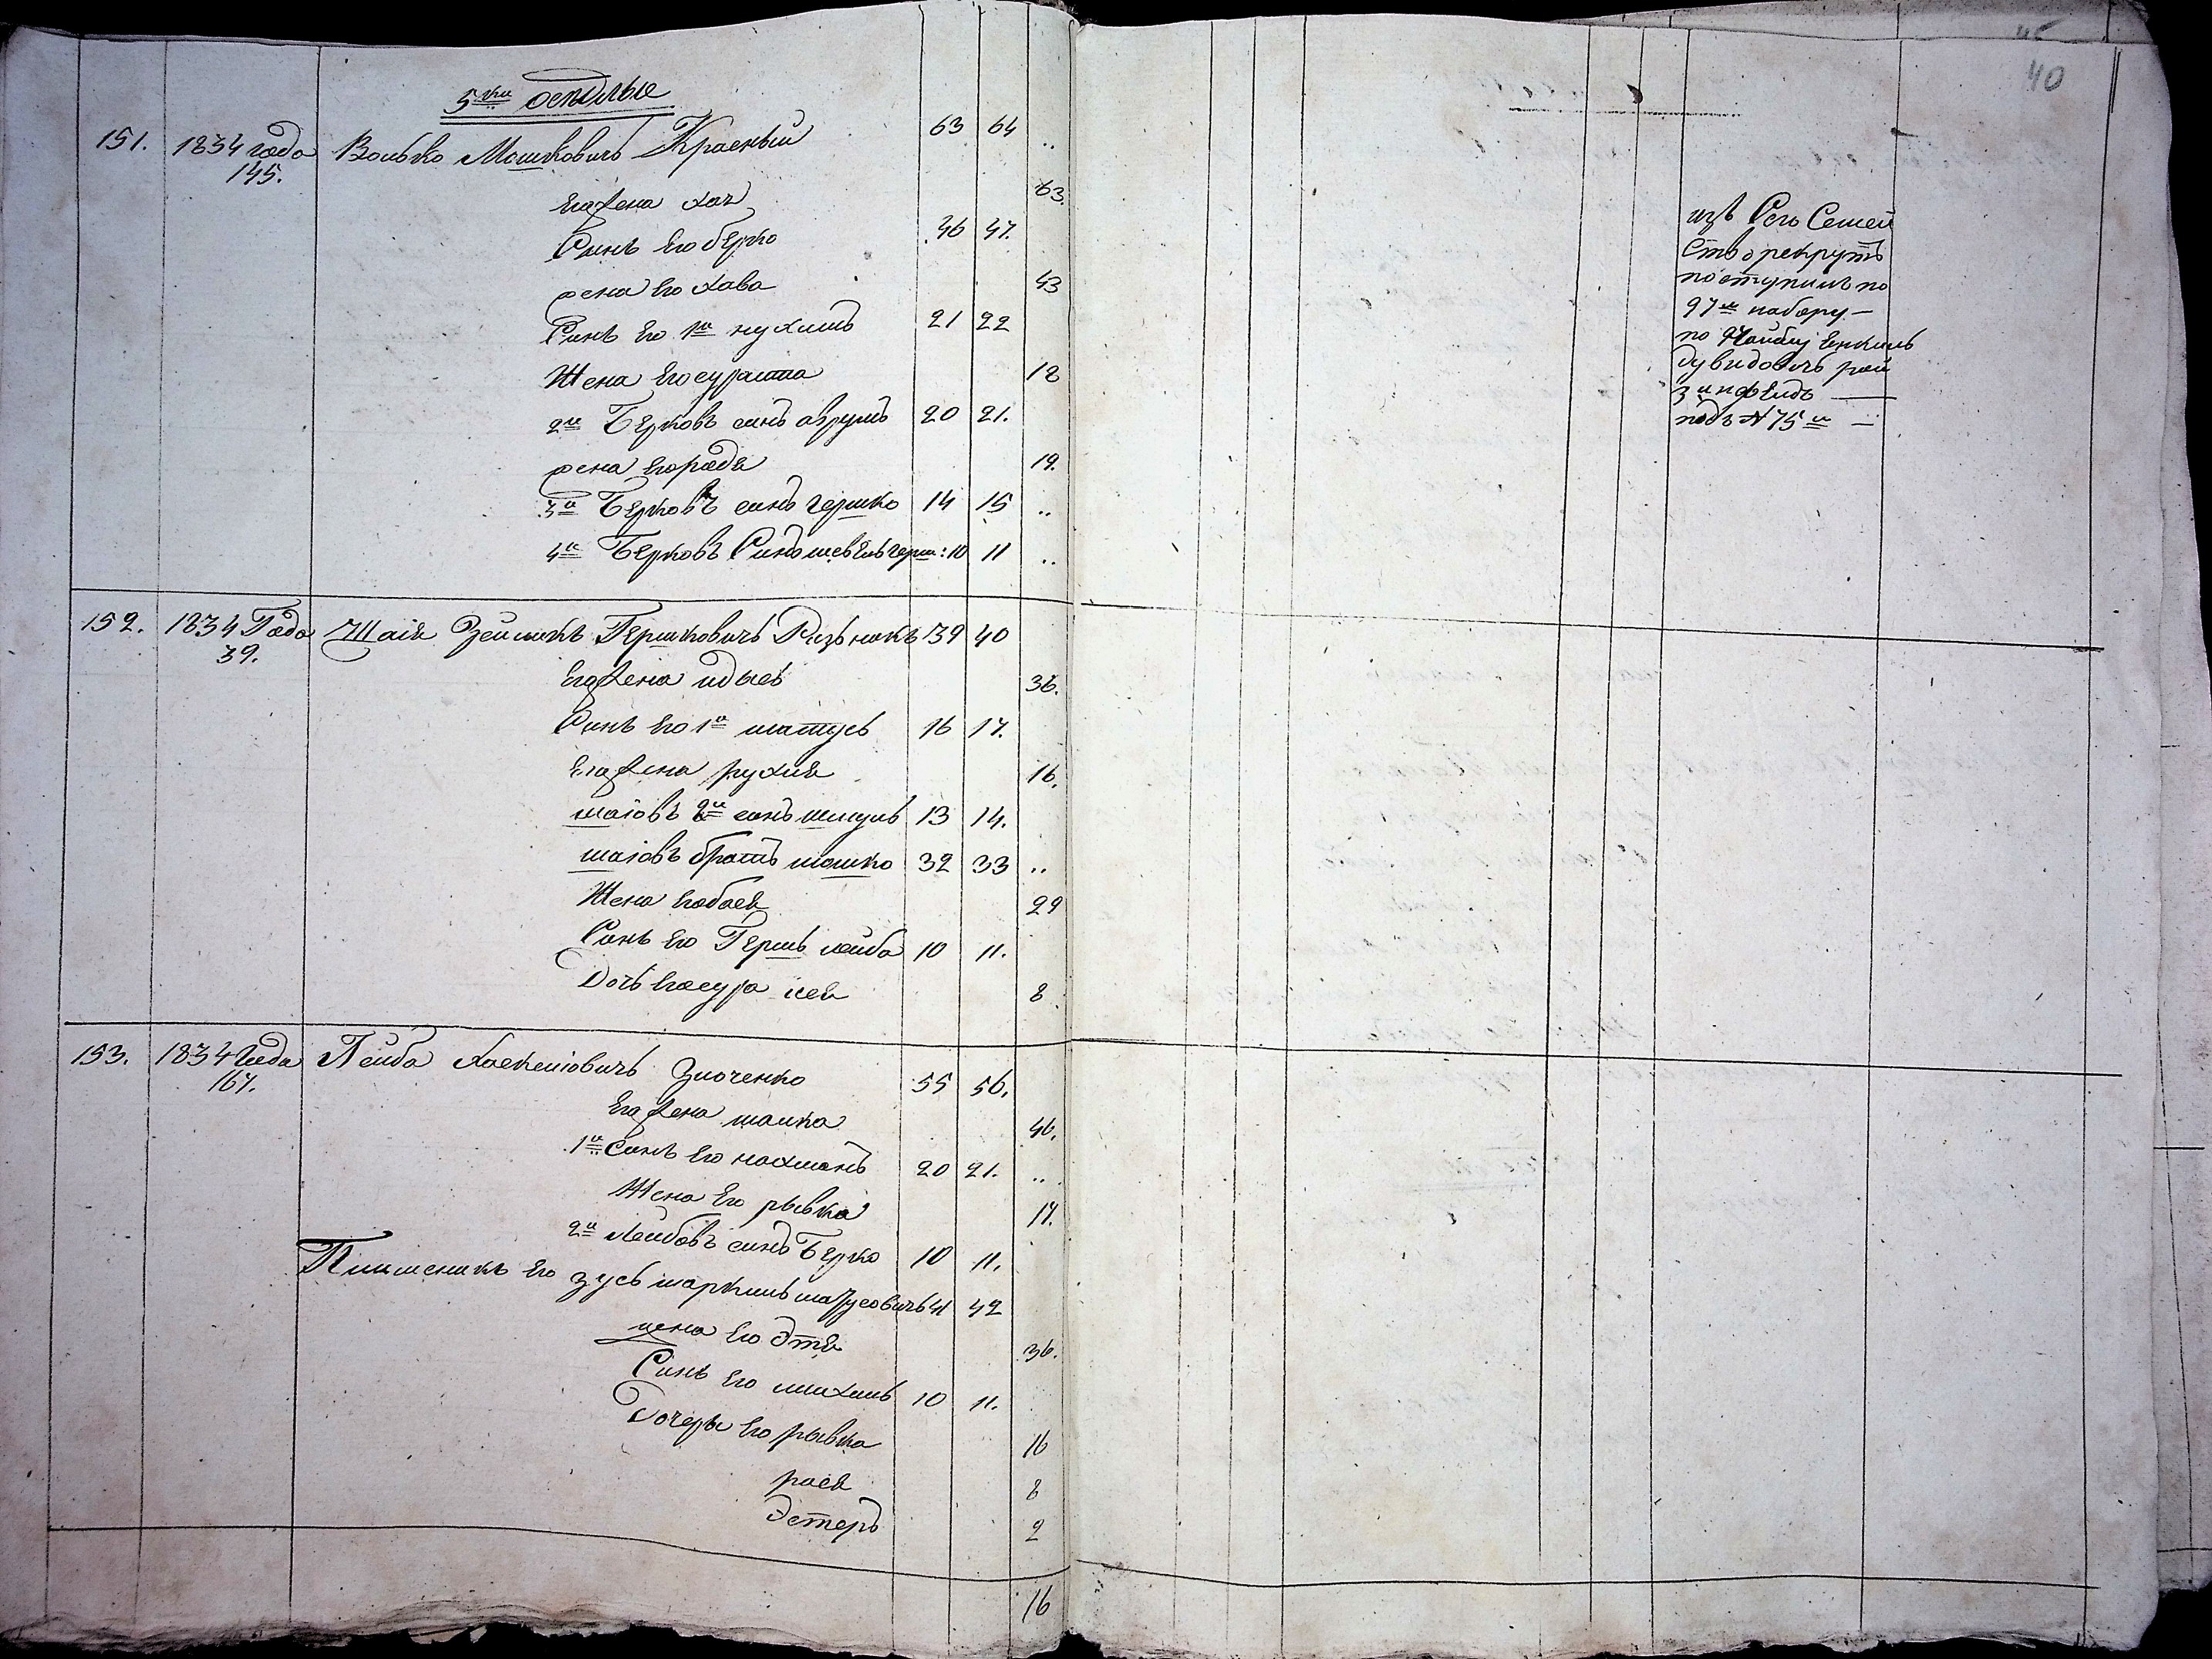 5ти осѣдлые
40
151. 1834 года Волько Мошковичъ Красный 63 64 ..
145.
Его жена хая 63.
Синъ Его берко 46 47.
жена Его хава 43
Синъ Его 1й нухимъ 21 22
Жена Его сура 18
2й Берковъ синъ аврумъ 20 21.
жена Его рася 19.
3й Берковъ синъ гершко 14 15 ..
4й Берковъ Синъ шевель герш: 10 11 ..
изъ Сего Семей
Ства рекрутъ
поступилъ по
97й набору —
по найму Енкиль
дувидовичъ рай
зинфельдъ —
подъ № 75й —
152. 1834 Года Шаія Зейликъ Гершковичъ Ризьникъ 39 40
39.
Его жена идысь 36.
Синъ Его 1й матусь 16 17.
Его жена рухля 16.
шаіовъ 2й синъ шмуль 13 14.
шаіовъ братъ мошко 32 33 ..
Жена Его бася 29
Синъ Его Герш лейба 10 11.
Дочь Его сура лея 8
153. 1834 Года Лейба Хаскеліовичъ Зноченко 55 56.
167.
Его жена малка 46.
1й Синъ Его нахманъ 20 21. ..
Жена Его рывка 17.
2й Лейбовъ синъ Берко 10 11.
Плименикъ Его зусь маркиль матусовичъ 41 42
жена Его Этя 36.
Синъ Его михиль 10 11.
Дочеры Его рывка 16
рася 8
Эстеръ 2
16